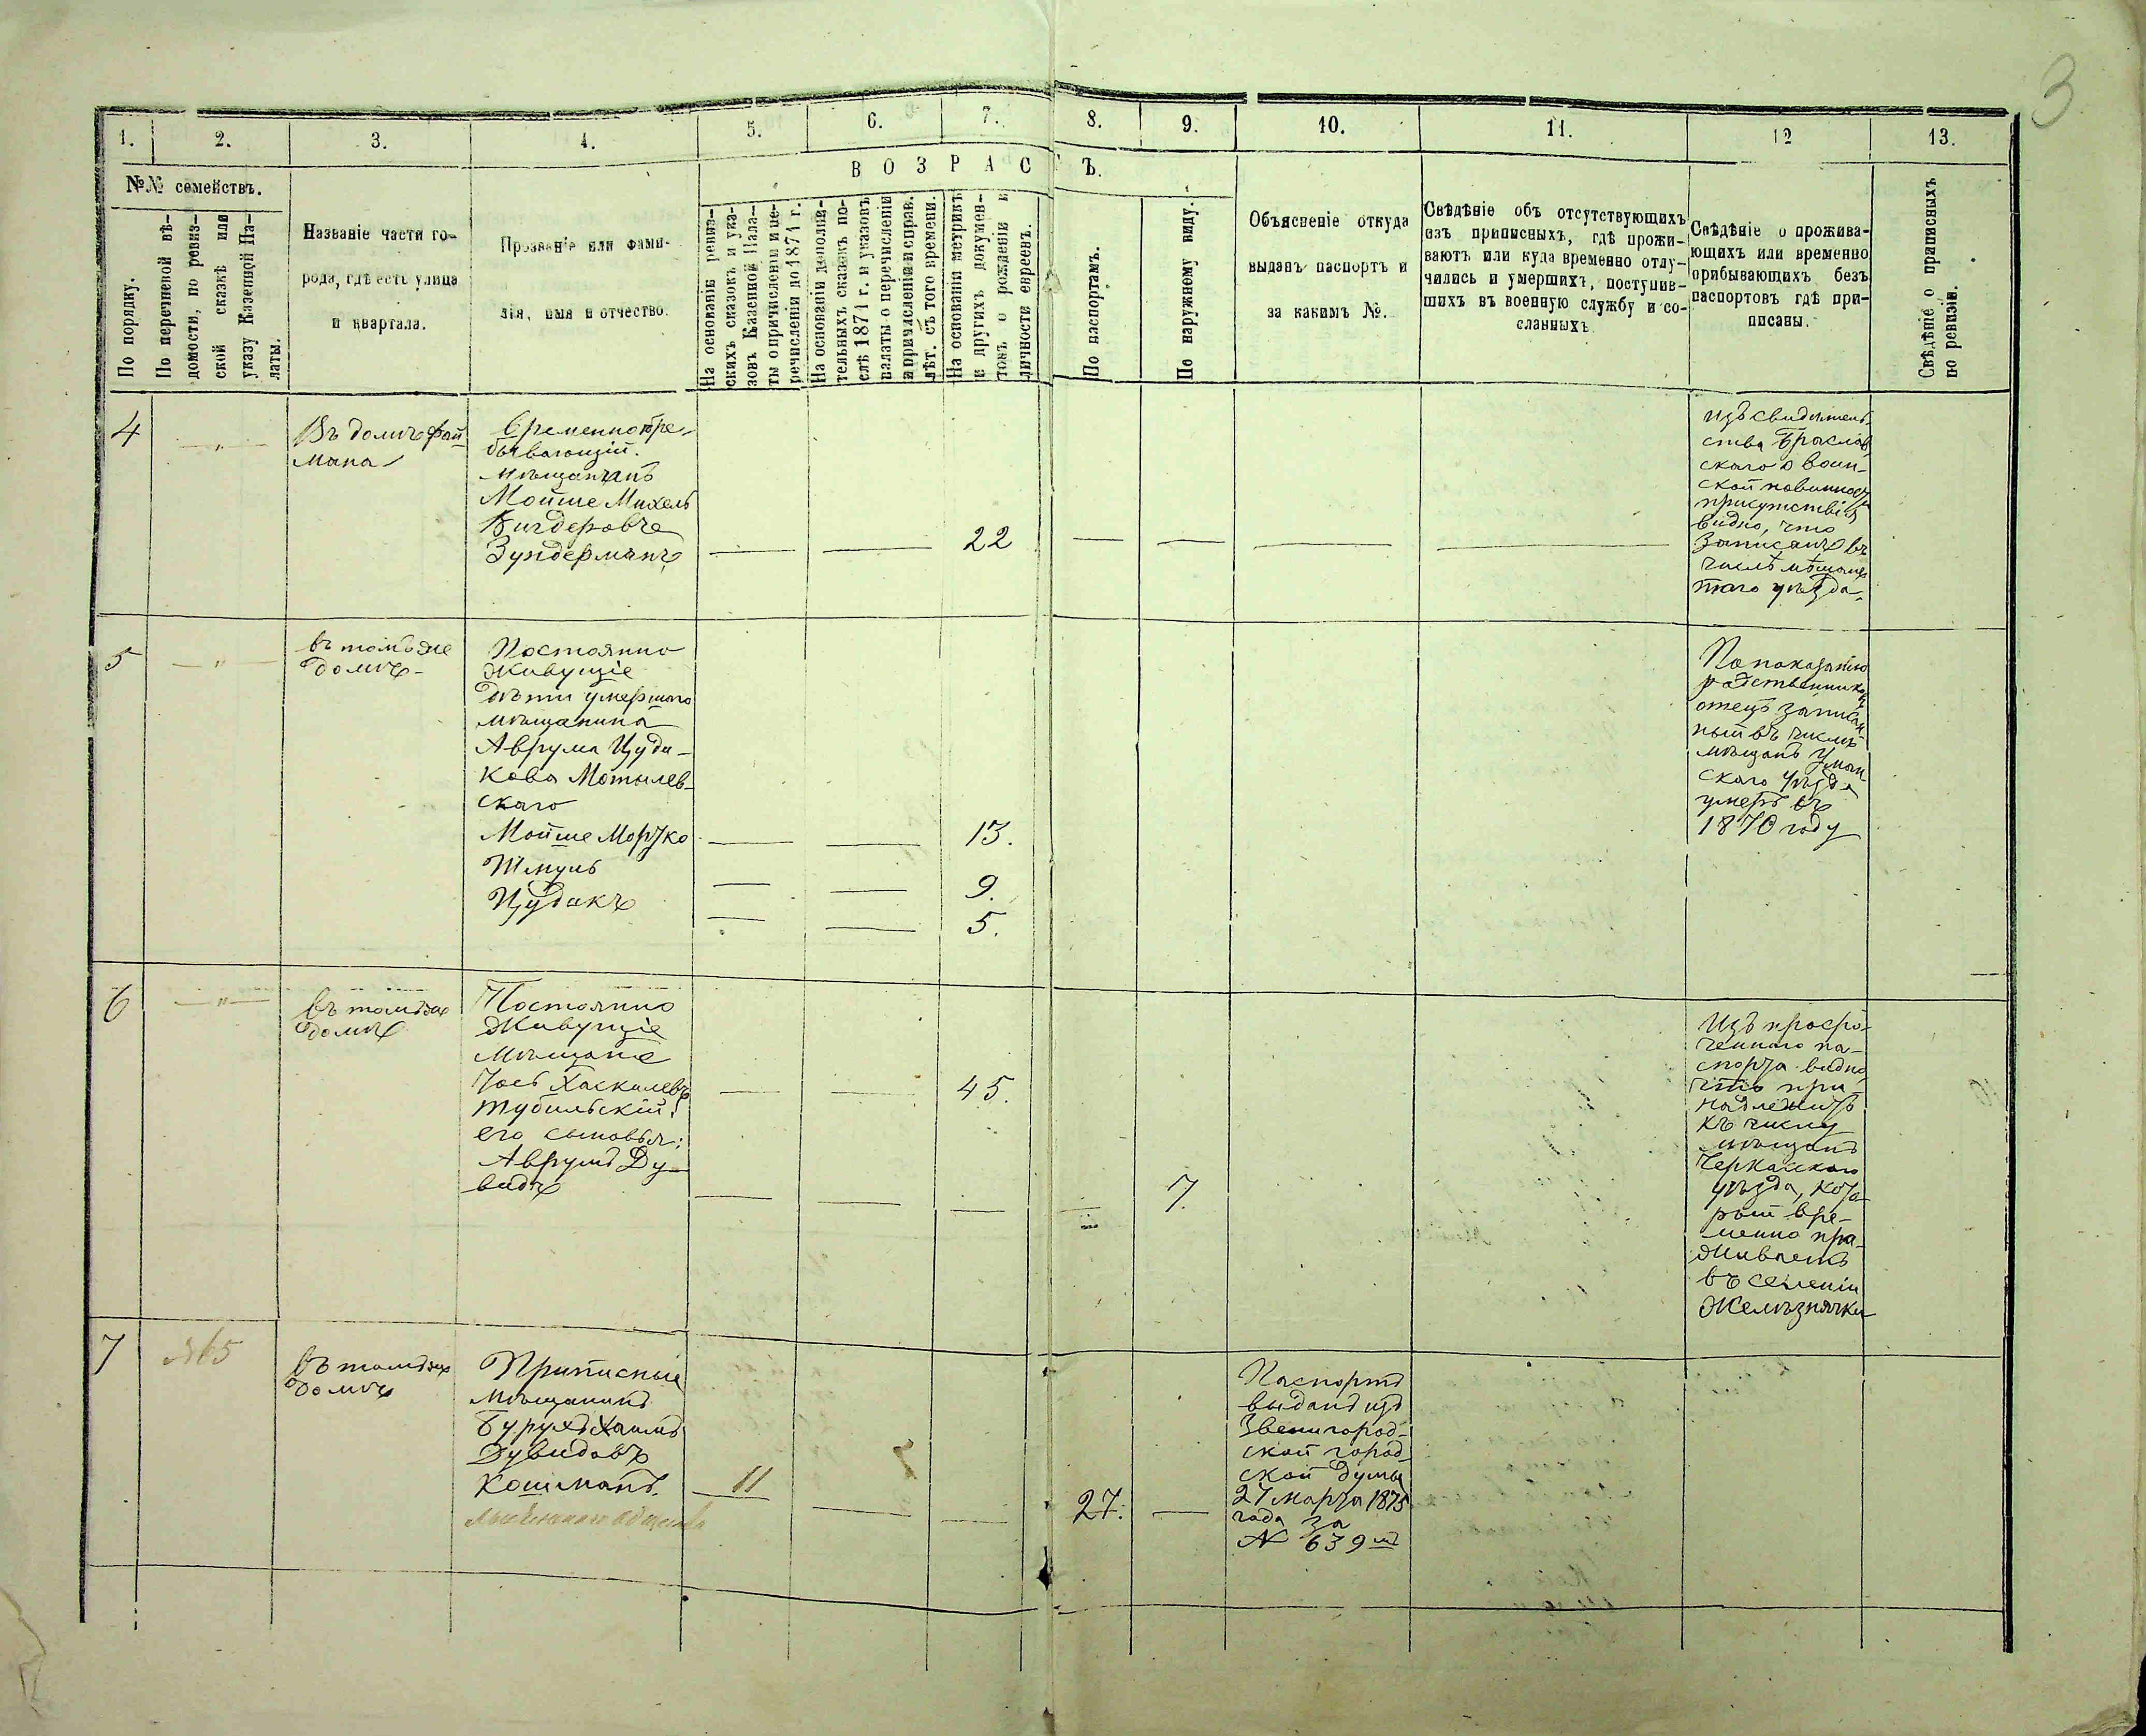 3
1. 2. 3. 4. 5. 6. 7. 8. 9. 10. 11. 12 13.
№№ семействъ.
По порядку.
По перечневой вѣ-
домости, по ревиз-
ской сказкѣ или
указу Казенной Па-
латы.
Названіе части го-
рода, гдѣ есть улица
и квартала.
Прозваніе или фами-
лія, имя и отчество.
ВОЗРАС Ъ.
На основаніи ревиз-
скихъ сказокъ и ука-
зовъ Казенной Пала-
ты о причисленіи и пе-
речисленіи по 1874 г.
На основаніи дополни-
тельныхъ сказокъ по-
слѣ 1874 г. и указовъ
палаты о перечисленіи
и причисленіи и справ.
лѣт. съ того времени.
На основаніи метрикъ
и другихъ докумен-
товъ о рожденіи и
личности евреевъ.
По паспортамъ.
По наружному виду.
Объясненіе откуда
выданъ паспортъ и
за какимъ №.
Свѣдѣніе объ отсутствующихъ
изъ приписныхъ, гдѣ прожи-
ваютъ или куда временно отлу-
чились и умершихъ, поступив-
шихъ въ военную службу и со-
сланныхъ
Свѣдѣніе о прожива-
ющихъ или временно
прибывающихъ безъ
паспортовъ гдѣ при-
писаны.
Свѣдѣніе о приписныхъ
по ревизіи.
4
— „ —
Въ домѣ Фай
мана
Временнопре-
бывающій.
мѣщанинъ
Мойше Михель
Зундерманъ
22
изъ свидѣтель
ства Брацлав
скаго о воин-
ской повинности
присутствія
видно, что
записанъ въ
числѣ мѣщанъ
того уѣзда
5
— „ —
въ томъ же
домѣ-
Постоянно
живущіе
дѣти умершаго
мѣщанина
Аврума Цуди-
кова Мотылев-
скаго
Мойше Мортко
Шмуль
Цудикъ
13.
9.
5.
По показанію
родственниковъ
отецъ записан
ный въ числѣ
мѣщанъ Уман
скаго уѣзда
умеръ въ
1870 году
6
— „ —
въ томъ же
домѣ
Постоянно
живущіе
мѣщане
Іось Хаскилевъ
Тубильскій.
его сыновья:
Аврумъ Ду-
видъ
45.
7.
Изъ просро-
ченнаго па-
спорта видно
что при-
надлежитъ
къ числу
мѣщанъ
Черкасскаго
уѣзда, кото-
рый вре-
менно про-
живаетъ
въ селеніи
Желѣзнячки
7
№65
въ томъ же
домѣ
Приписные
мѣщанинъ
Бурухъ Хаимъ
Дувидовъ
Кошманъ.
11
27.
Паспортъ
выданъ изъ
Звенигород-
ской город
ской думы
27 марта 1875
года за
№ 639